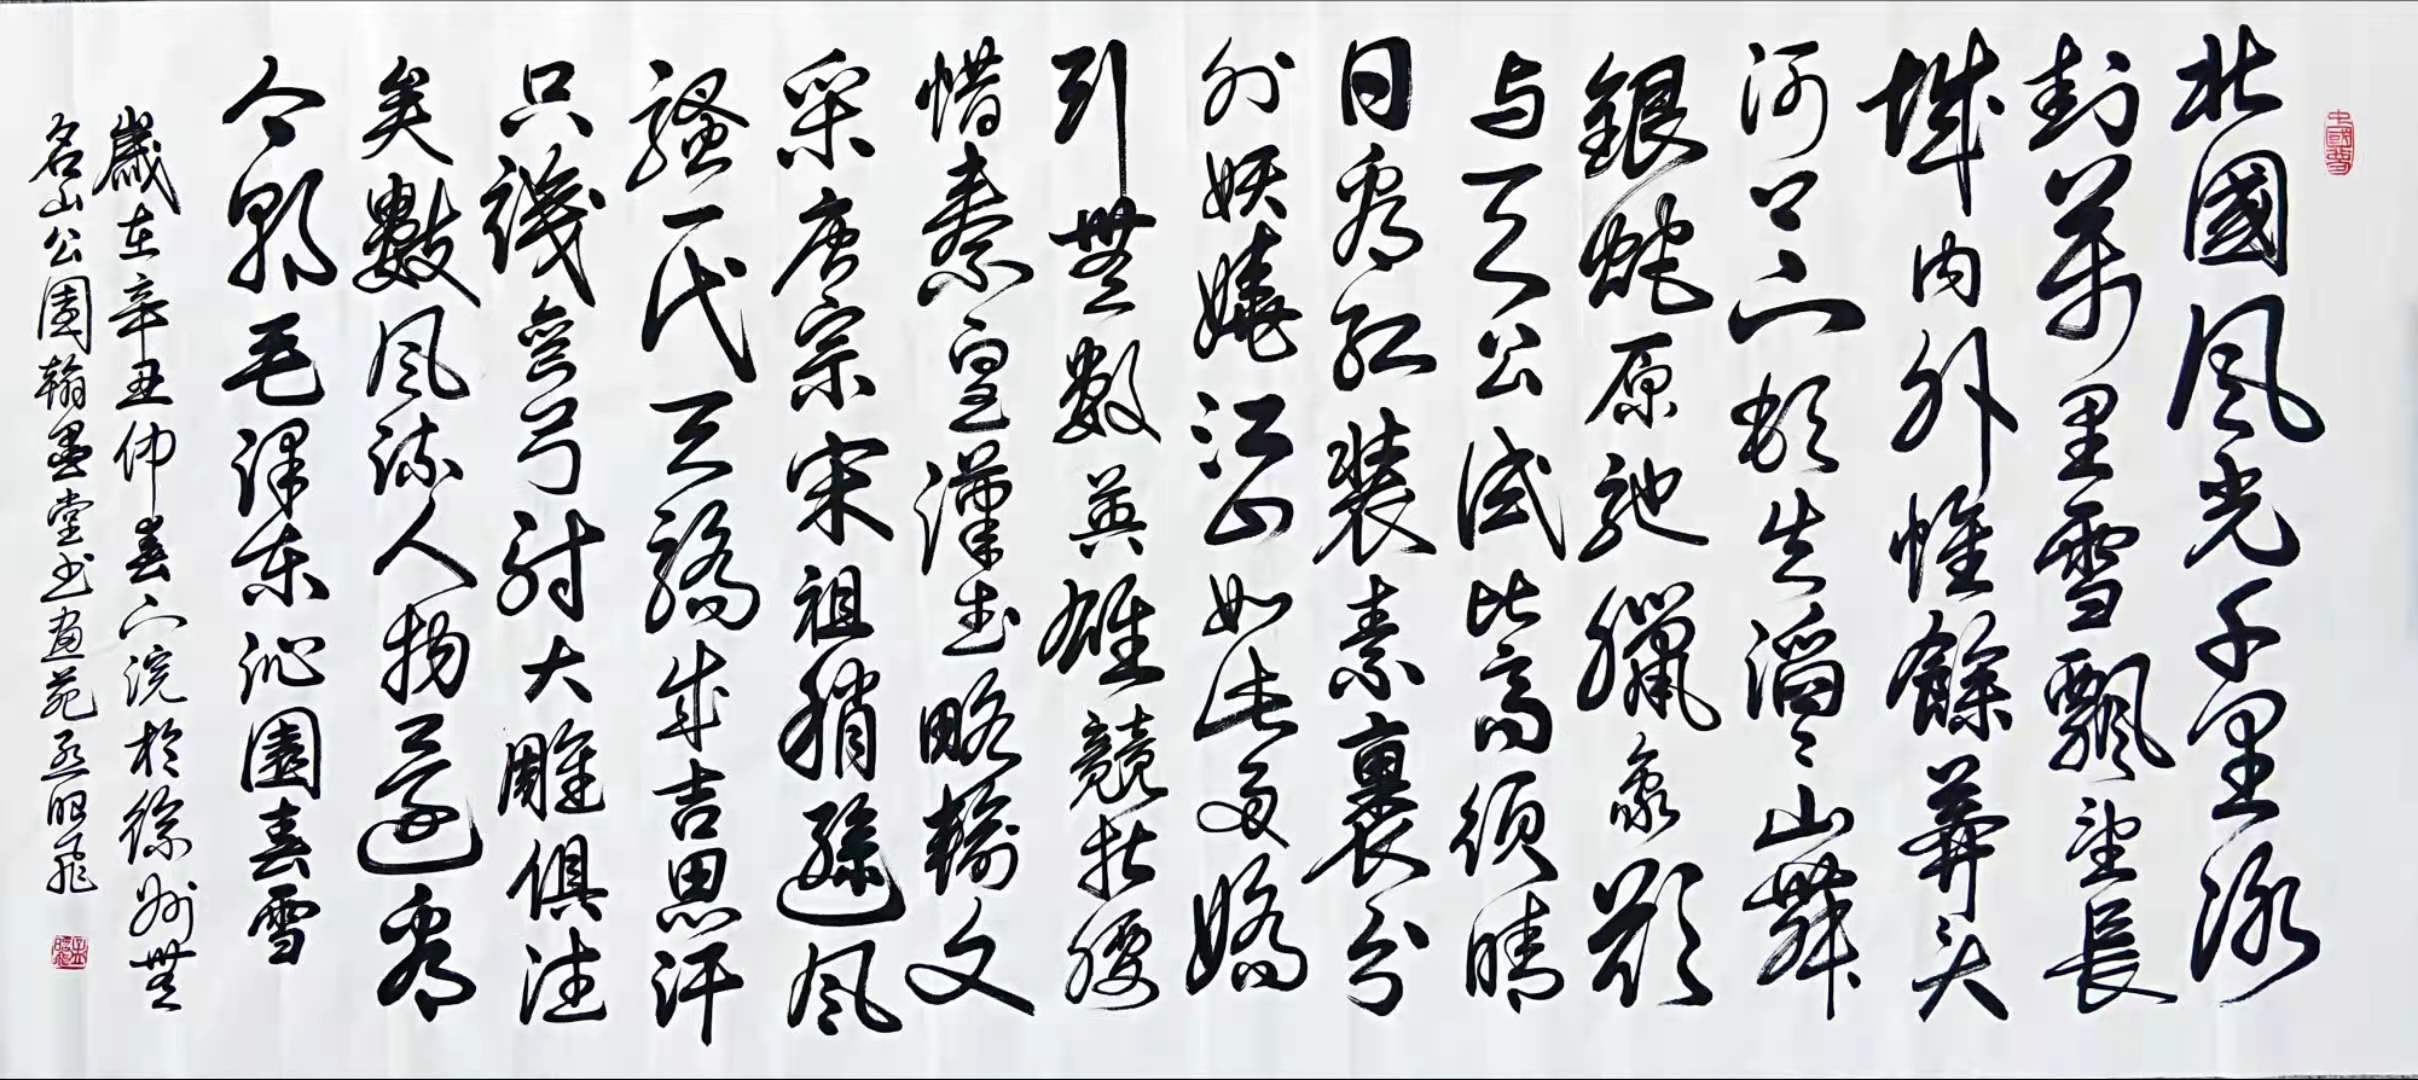 中國夢
北國风光千里冰
封萬里雪飄望長
城内外惟餘莽〻大
河上下頓失滔〻山舞
銀蛇原驰臘象欲
与天公试比高须晴
日看红裝素裹分
外妖嬈江山如此多嬌
引無數英雄競折腰
惜秦皇漢武略輸文
采唐宗宋祖稍遜风
骚一代天骄成吉思汗
只識彎弓射大雕俱往
矣數风流人物還看
今朝毛泽东沁園春雪
歲在辛丑仲春下浣於徐州無
名山公園翰墨堂书画苑孟昭飛